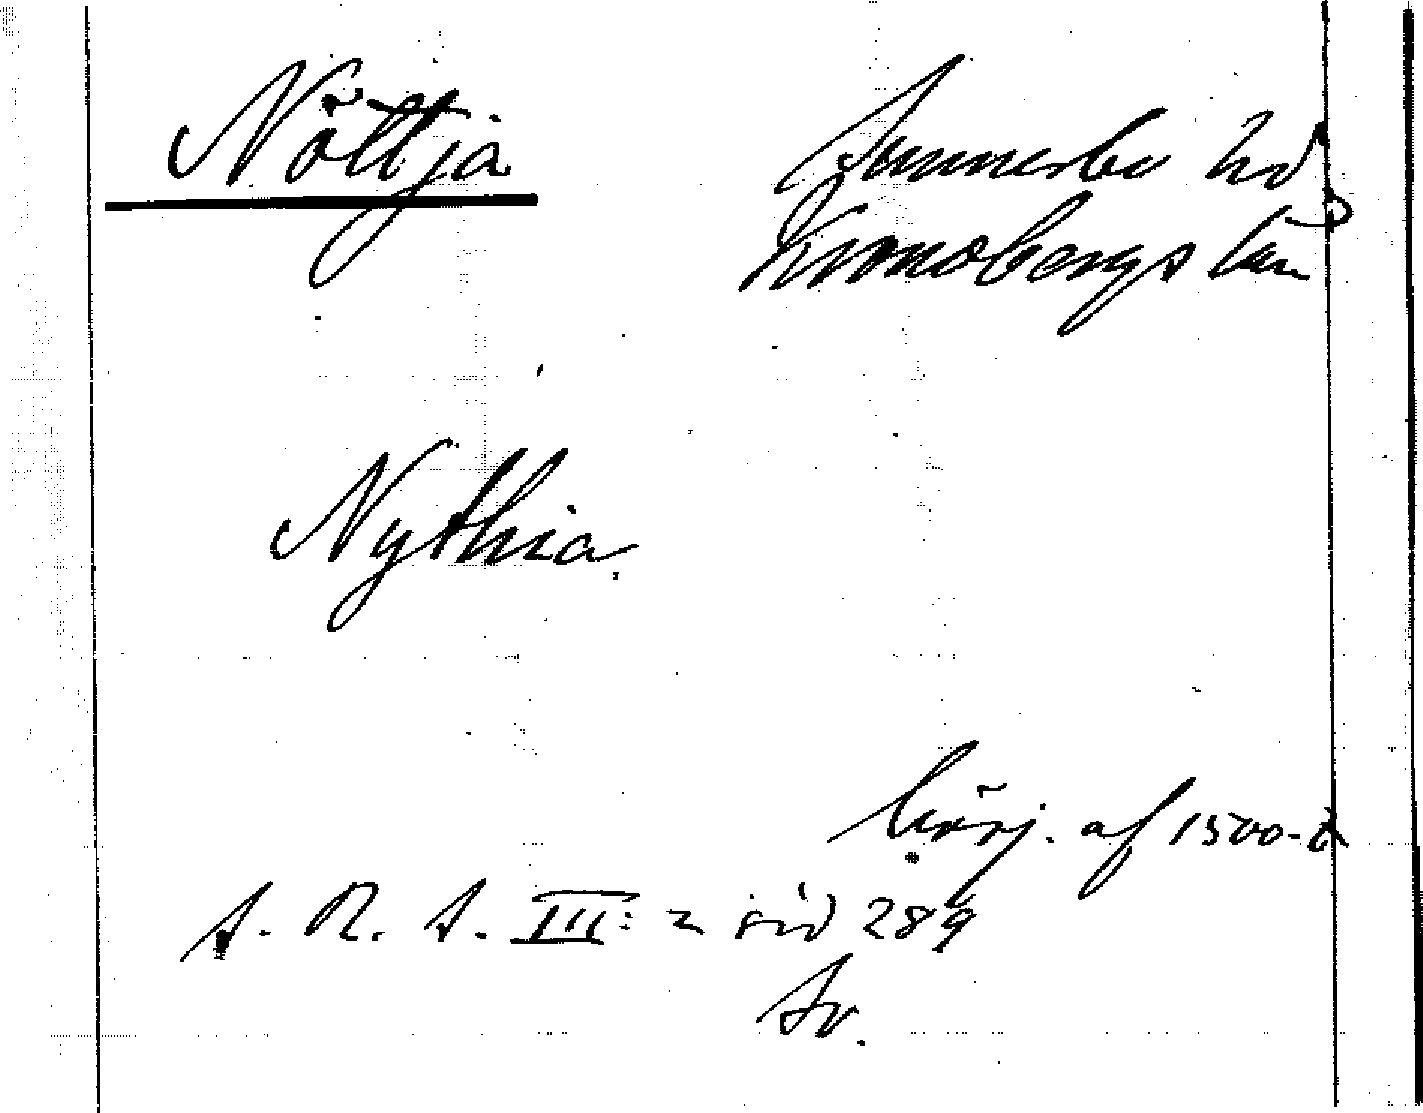 Nöttja
Sunnerbo hd
Kronobergs län
Nythia.
börj. af 1500-t
S. R. S. III: 2 sid 289
Sv.